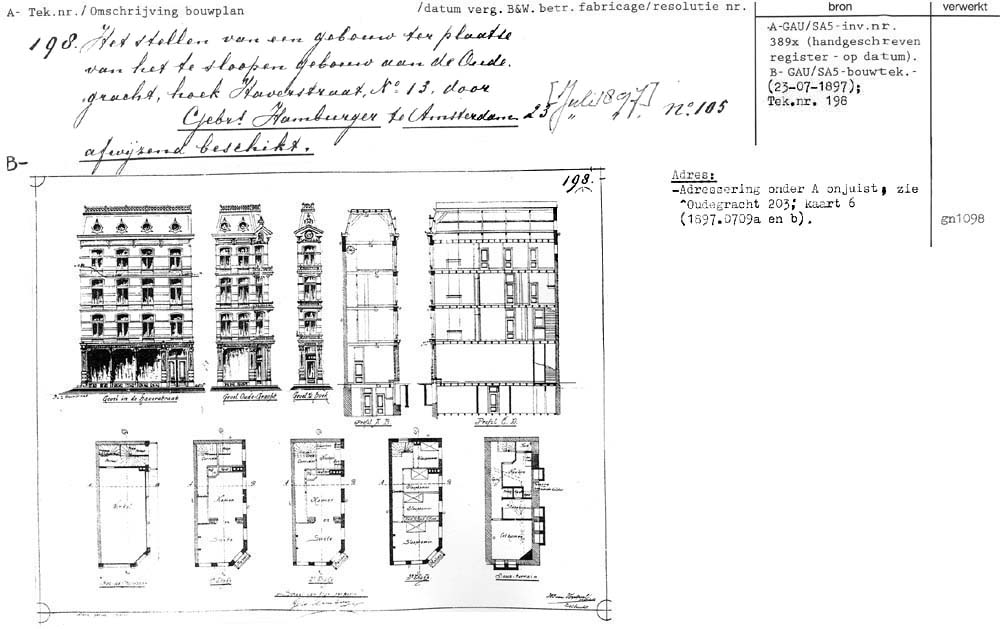 A- Tek.nr./ Omschrijving bouwplan
/datum verg. B&W. betr. fabricage/resolutie nr.
bron
verwerkt
198. Het stellen van een gebouw ter plaatse
van het te sloopen gebouw aan de Oude.
gracht, hoek Haverstraat, No 13. door
Gebrs. Hamburger te Amsterdam 23 [Juli 1897] no. 105
afwijzend beschikt.
A-GAU/SA5-inv.nr.
389x (handgeschreven
register - op datum).
B- GAU/SA5-bouwtek.-
(23-07-1897);
Tek.nr. 198
B-
198.
Adres:
-Adressering onder A onjuist; zie
^Oudegracht 203; kaart 6
(1897.0709a en b).
gn1098
Gevel in de Haverstraat
Gevel Oude-Gracht
Gevel d. hoek
Profil A. B.
Profil C. D.
Winkel
Kamer
Suite
Keuken
Kamer
Suite
Slaapkamer
Slaapkamer
Slaapkamer
A
B
A
B
A
B
1e Etage
2e Etage
3e Etage
Sous-terrain